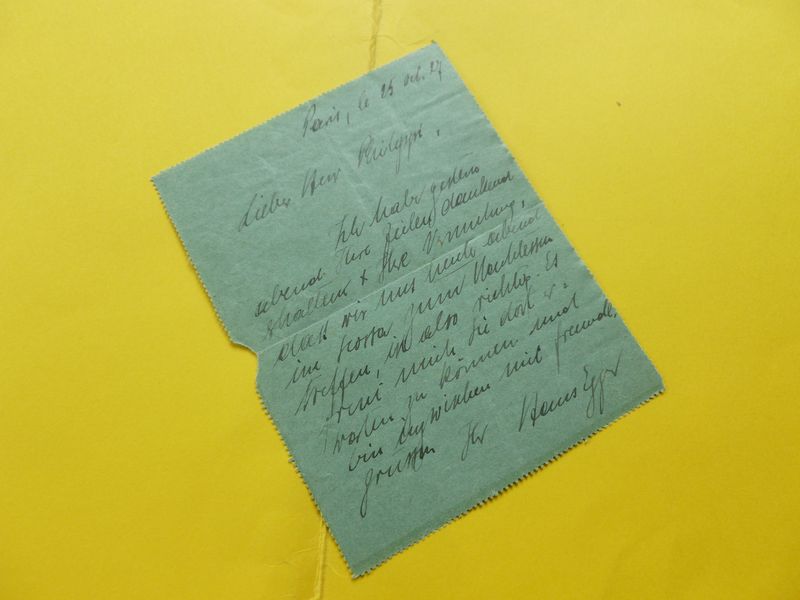 Paris, le 25 oct. 27
Lieber Herr Philipp,
Ich habe gestern
abend Ihre Zeilen dankend
erhalten & Ihre Vermutung,
dass wir uns heute abend
im zum Nachtessen
treffen, ist also richtig. Es
freut mich Sie dort er=
warten zu können und
bin inzwischen mit freundl.
Grüssen Ihr Hans Egger